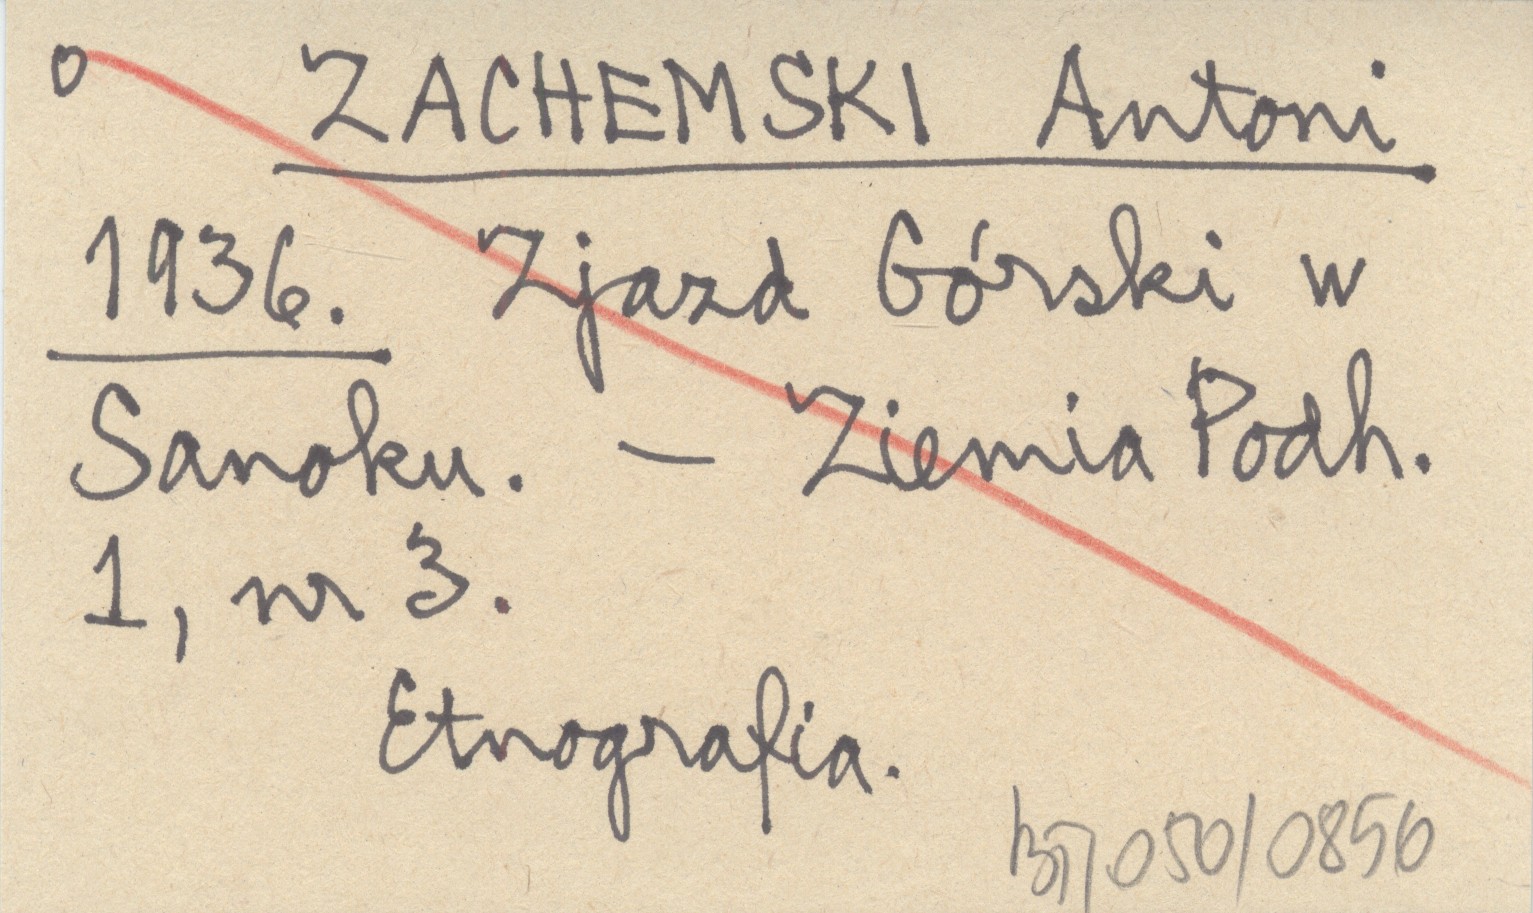 o ZACHEMSKI Antoni
1936. Zjazd Górski w
Sanoku. — Ziemia Podh.
1, nr 3.
Etnografia.
050/0856